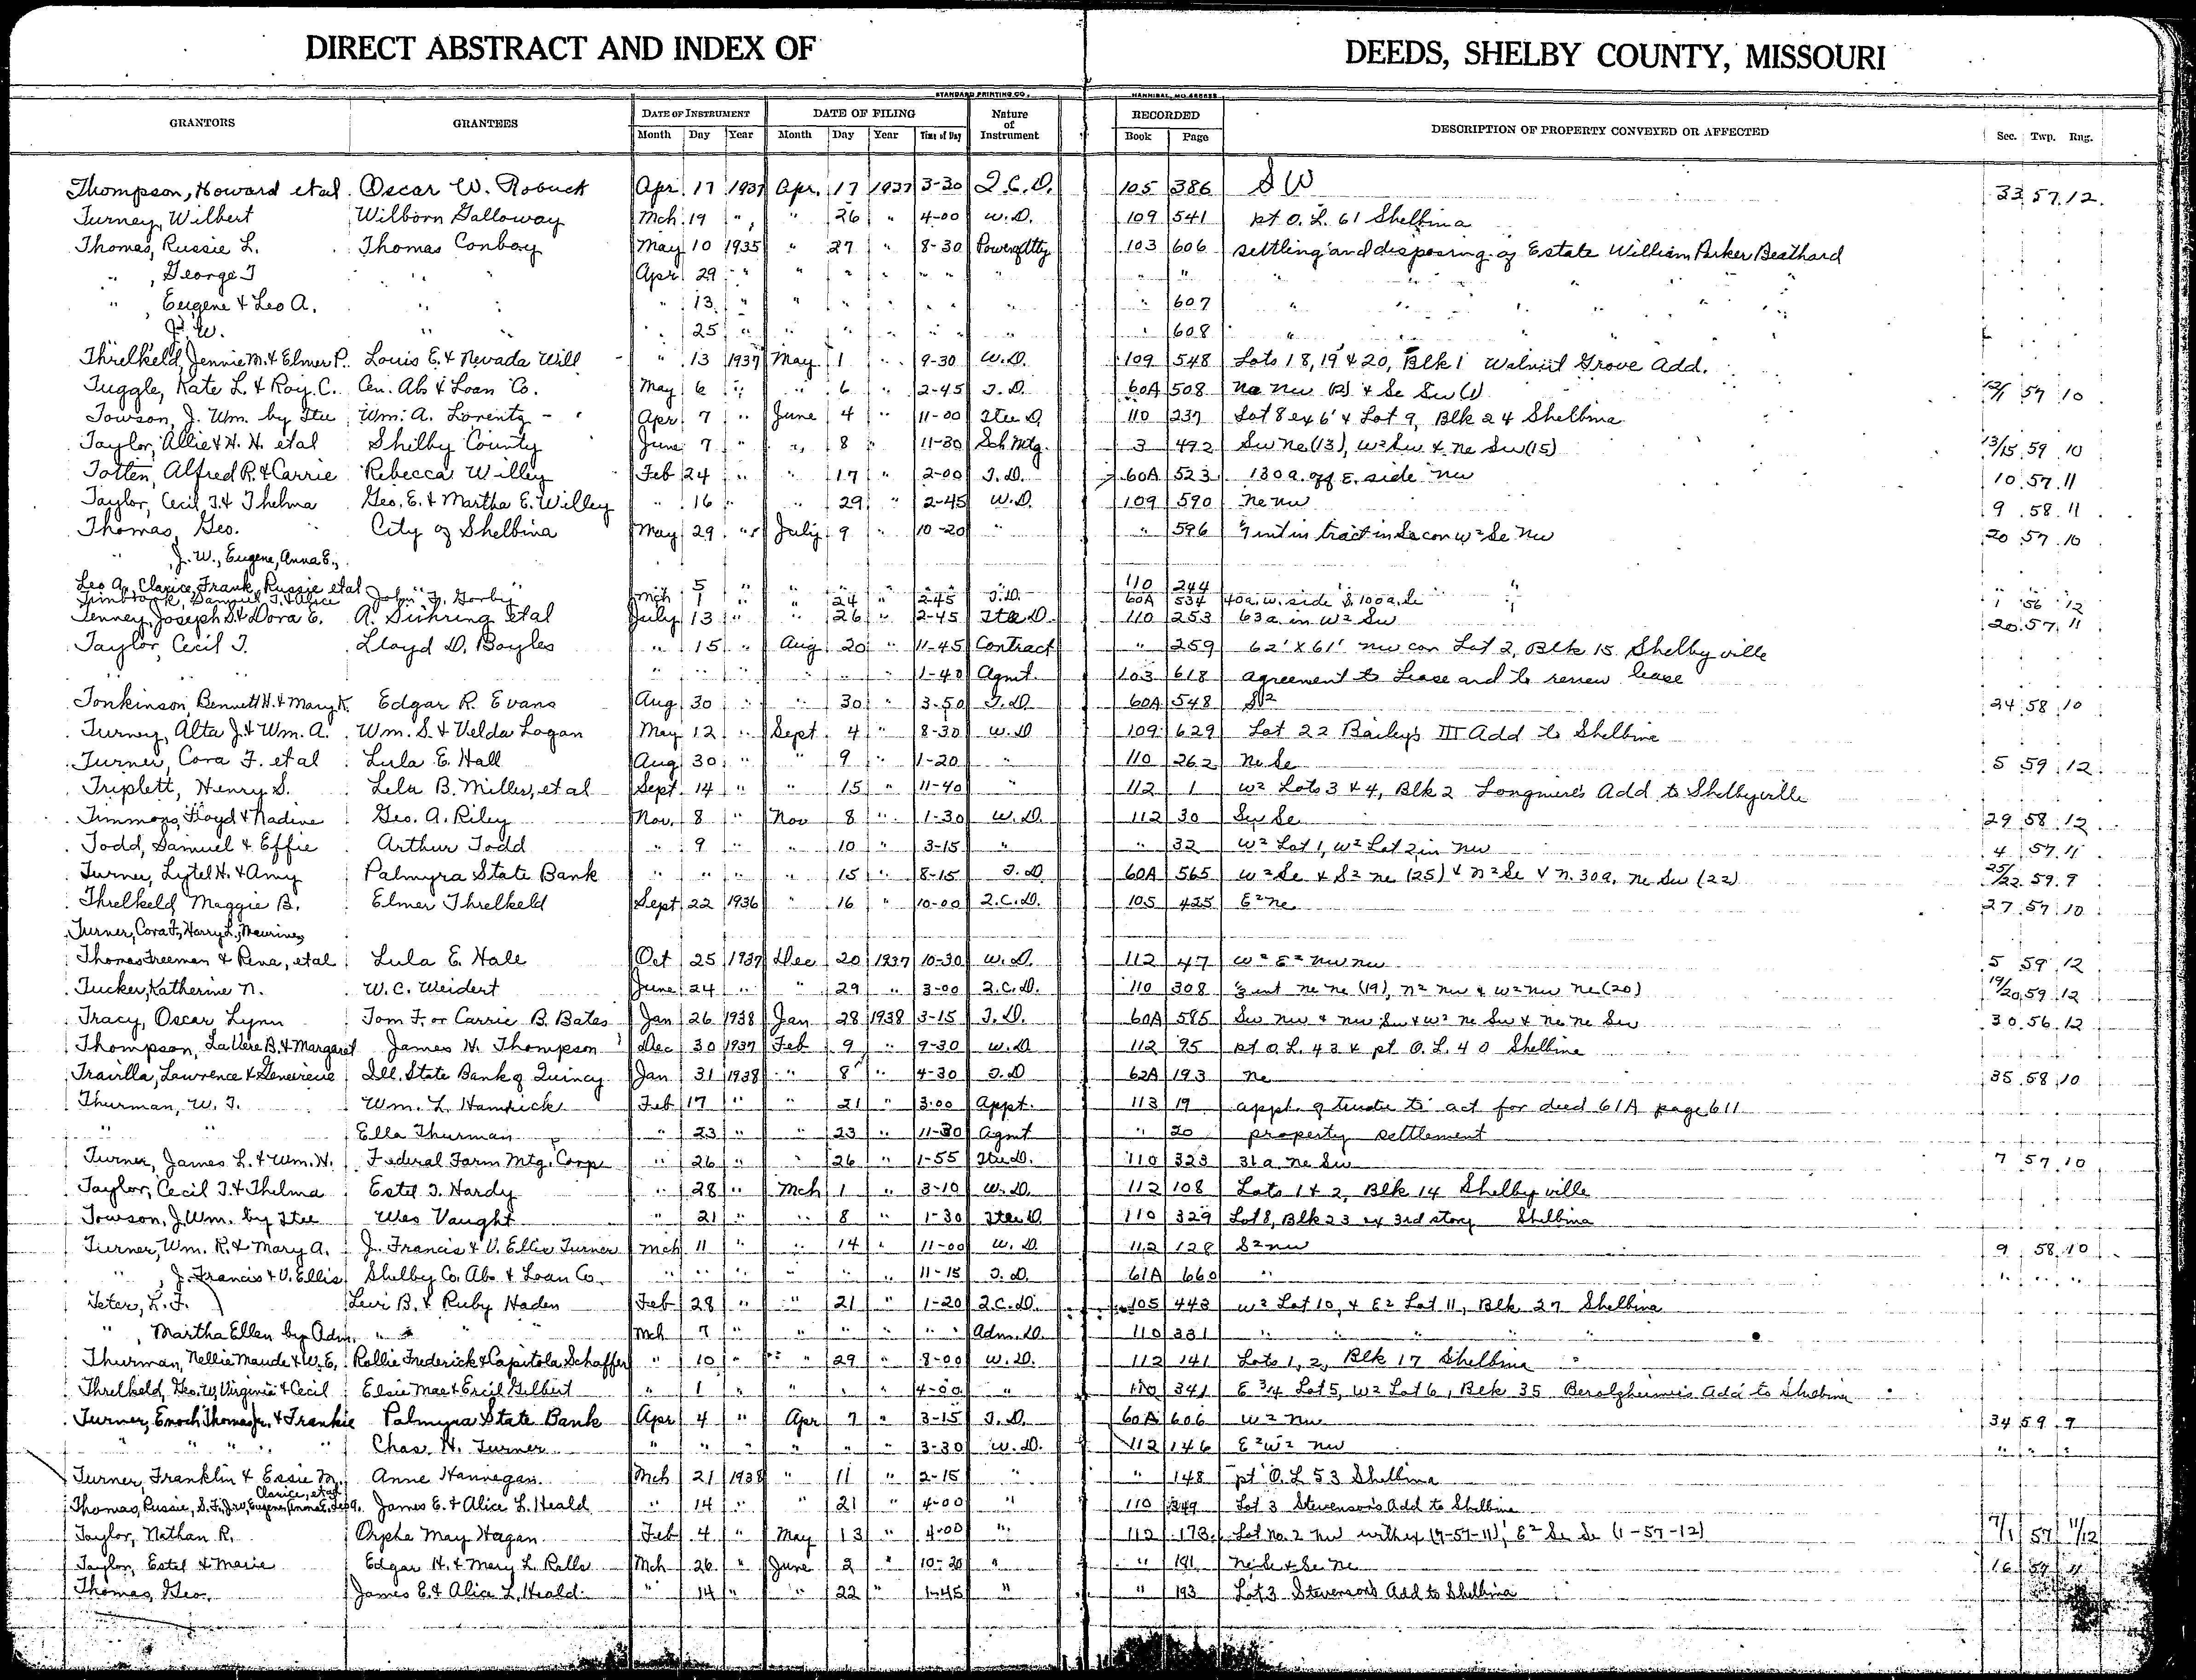 DIRECT ABSTRACT AND INDEX OF DEEDS, SHELBY COUNTY, MISSOURI
STANDARD PRINTING CO. HANNIBAL, MO.
GRANTORS GRANTEES DATE OF INSTRUMENT DATE OF FILING Nature of Instrument RECORDED DESCRIPTION OF PROPERTY CONVEYED OR AFFECTED Sec. Twp. Rng.
Month Day Year Month Day Year Time of Day Book Page
Thompson, Howard etal Oscar W. Robuck Apr. 17 1937 Apr. 17 1937 3-30 Q.C.D. 105 386 SW 33 57 12
Turney, Wilbert Wilborn Galloway Mch 19 " " 26 " 4-00 W.D. 109 541 pt O.L. 61 Shelbina
Thomas, Russie L. Thomas Conboy May 10 1935 " 27 " 8-30 Power of Atty 103 606 settling and disposing of Estate William Parker Beathard
" , George T " " Apr 29 " " " " " " " " "
" , Eugene & Leo A. " " " 13 " " " " " " " 607 " " " " "
J. W. " " " 25 " " " " " " " 608 " " " "
Threlkeld, Jennie M. & Elmer P. Louis E. & Nevada Will " 13 1937 May 1 " 9-30 W.D. 109 548 Lots 18, 19 & 20, Blk 1 Walnut Grove Add.
Tuggle, Kate L. & Roy C. Cen. Ab & Loan Co. May 6 " " 6 " 2-45 T.D. 60A 508 Ne Nw (12) & Se Sw (1) 12/1 57 10
Towson, J. Wm. by Ttee Wm. A. Lorentz Apr 7 " June 4 " 11-00 Ttee D. 110 237 Lot 8 ex 6' & Lot 9, Blk 24 Shelbina
Taylor, Allie & H. H. etal Shelby County June 7 " " 8 " 11-30 Sch Mtg. 3 492 Sw Ne (13), W2 Sw & Ne Sw (15) 13/15 59 10
Totten, Alfred R. & Carrie Rebecca Willey Feb 24 " " 17 " 2-00 T.D. 60A 523 130a. off E. side Nw 10 57 11
Taylor, Cecil T. & Thelma Geo. E. & Martha E. Willey " 16 " " 29 " 2-45 W.D. 109 590 Ne Nw 9 58 11
Thomas, Geo. City of Shelbina May 29 " July 9 " 10-20 " " 596 int in tract in Se cor W2 Se Nw 20 57 10
" J. W., Eugene, Anna E.,
Leo A., Clarice, Frank, Russie etal " " 5 " " " " " " 110 244 " " " " "
Timbrook, Samuel T. & Alice John F. Gorby Mch 1 " " 24 " 2-45 T.D. 60A 534 40a. W. side S. 100a. Se 1 56 12
Tenney, Joseph S. & Dora E. A. Sühring etal July 13 " " 26 " 2-45 Ttee D. 110 253 63a in W2 Sw 20 57 11
Taylor, Cecil T. Lloyd D. Boyles " 15 " Aug 20 " 11-45 Contract " 259 62' X 61' Nw cor Lot 2, Blk 15 Shelbyville
" " " " " " " " " " 1-40 Agmt. 103 618 agreement to Lease and to renew lease
Tonkinson, Bennett H. & Mary K. Edgar R. Evans Aug 30 " " 30 " 3-50 T.D. 60A 548 S2 24 58 10
Turney, Alta J. & Wm. A. Wm. S. & Velda Logan May 12 " Sept. 4 " 8-30 W.D. 109 629 Lot 22 Bailey's III Add to Shelbina
Turner, Cora F. et al Lula E. Hall Aug 30 " " 9 " 1-20 " 110 262 Ne Se 5 59 12
Triplett, Henry S. Lela B. Miller, et al Sept. 14 " " 15 " 11-40 " 112 1 W2 Lots 3 & 4, Blk 2 Longmire's Add to Shelbyville
Timmons, Floyd & Nadine Geo. A. Riley Nov. 8 " Nov 8 " 1-30 W.D. 112 30 Sw Se 29 58 12
Todd, Samuel & Effie Arthur Todd " 9 " " 10 " 3-15 " " 32 W2 Lot 1, W2 Lot 2 in Nw 4 57 11
Turner, Lytel H. & Amy Palmyra State Bank " " " " 15 " 8-15 T.D. 60A 565 W2 Se & S2 Ne (25) & N2 Se & N. 30a. Ne Sw (22) 25/22 59 9
Threlkeld, Maggie B. Elmer Threlkeld Sept 22 1936 " 16 " 10-00 Q.C.D. 105 425 E2 Ne 27 57 10
Turner, Cora F., Harry L., Maurine,
Thomas Freeman & Rena, etal Lula E. Hale Oct 25 1937 Dec 20 1937 10-30 W.D. 112 47 W2 E2 Nw Nw 5 59 12
Tucker, Katherine N. W. C. Weidert June 24 " " 29 " 3-00 Q.C.D. 110 308 int Ne Ne (19), N2 Nw & W2 Nw Ne (20) 19/20 59 12
Tracy, Oscar Lynn Tom F. or Carrie B. Bates Jan 26 1938 Jan 28 1938 3-15 T.D. 60A 585 Sw Nw & Nw Sw & W2 Ne Sw & Ne Ne Sw 30 56 12
Thompson, LaVere B. & Margaret James H. Thompson Dec 30 1937 Feb 9 " 9-30 W.D. 112 95 pt O.L. 43 & pt O.L. 40 Shelbina
Travilla, Lawrence & Genevieve Ill. State Bank of Quincy Jan 31 1938 " 8 " 4-30 T.D. 62A 193 Ne 35 58 10
Thurman, W. T. Wm. L. Hamrick Feb 17 " " 21 " 3.00 Appt. 113 19 appt. of trustee to act for deed 61A page 611
" " Ella Thurman " 23 " " 23 " 11-30 Agmt " 20 property settlement
Turner, James L. & Wm. H. Federal Farm Mtg. Corp. " 26 " " 26 " 1-55 Ttee D. 110 323 31a Ne Sw 7 57 10
Taylor, Cecil T. & Thelma Estel T. Hardy " 28 " Mch 1 " 3-10 W.D. 112 108 Lots 1 & 2, Blk 14 Shelbyville
Towson, J. Wm. by Ttee Wes Vaught " 21 " " 8 " 1-30 Ttee D. 110 329 Lot 8, Blk 23 ex 3rd story Shelbina
Turner, Wm. R. & Mary A. J. Francis & V. Ellis Turner Mch 11 " " 14 " 11-00 W.D. 112 128 S2 Nw 9 58 10
" , J. Francis & V. Ellis Shelby Co. Ab. & Loan Co. " " " " " " 11-15 T.D. 61A 660 " " " "
Teter, L. F. Levi B. & Ruby Haden Feb 28 " " 21 " 1-20 Q.C.D. 105 443 W2 Lot 10, & E2 Lot 11, Blk 27 Shelbina
" , Martha Ellen by Adm. " " " Mch 7 " " " " " Adm. D. 110 331 " " " " "
Thurman, Nellie Maude & W. E. Rollie Frederick & Capitola Schaffer " 10 " " 29 " 8-00 W.D. 112 141 Lots 1, 2, Blk 17 Shelbina
Threlkeld, Geo. W., Virginia & Cecil Elsie Mae & Ercil Gilbert " 1 " " " " 4-00 " 110 341 E 3/4 Lot 5, W2 Lot 6, Blk 35 Berolzheimer's Add to Shelbina
Turner, Enoch Thomas Jr. & Frankie Palmyra State Bank Apr 4 " Apr 7 " 3-15 T.D. 60A 606 W2 Nw 34 59 9
" " " " " Chas. H. Turner " " " " " " 3-30 W.D. 112 146 E2 W2 Nw " " "
Turner, Franklin & Essie M. Anne Hannegan Mch 21 1938 " 11 " 2-15 " " 148 pt O.L. 53 Shelbina
Clarice, etal
Thomas, Russie, S.F., J.W., Eugene, Anna E., Leo A. James E. & Alice L. Heald " 14 " " 21 " 4-00 " 110 349 Lot 3 Stevenson's Add to Shelbina
Taylor, Nathan R. Orpha May Hagan Feb 4 " May 13 " 4-00 " 112 173 Lot No. 2 Nw with ex (7-57-11), E2 Se Se (1-57-12) 7/1 57 11/12
Taylor, Estel & Marie Edgar H. & Mary L. Ralls Mch 26 " June 2 " 10-30 " " 181 Ne Se & Se Ne 16 59 11
Thomas, Geo. James E. & Alice L. Heald " 14 " " 22 " 1-45 " " 193 Lot 3 Stevenson's Add to Shelbina